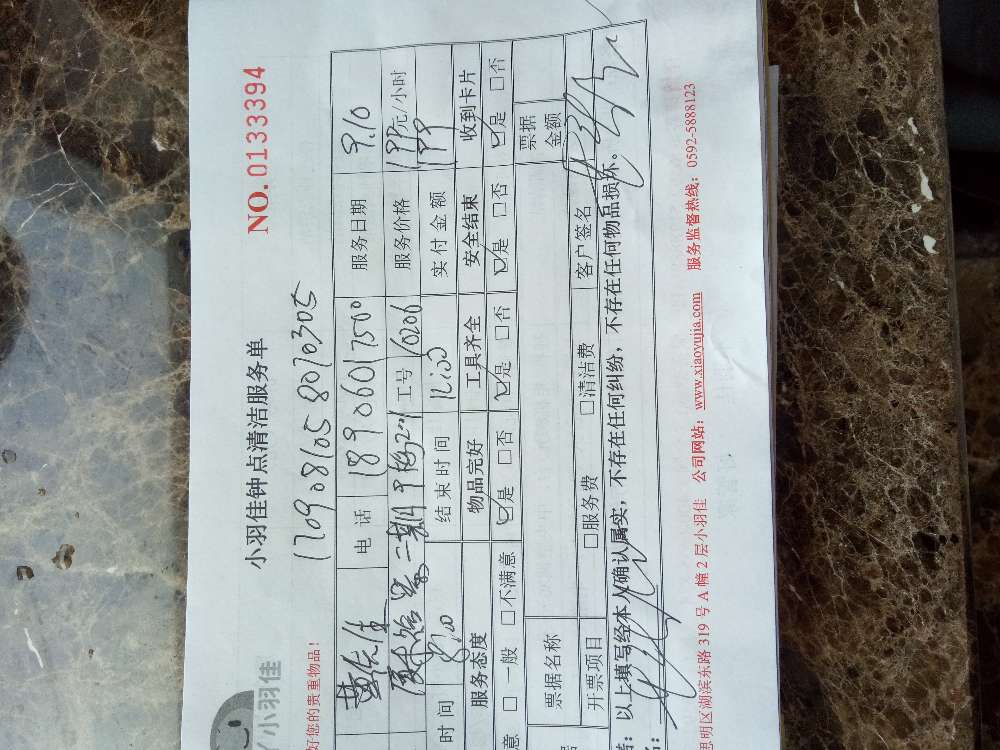 小羽佳钟点清洁服务单
NO.0133394
小羽佳
好您的贵重物品！
1709081058070305
黄先生 电话 18906017500 服务日期 9.10
二期 工号 10206 服务价格 199元/小时
时间 8:00 结束时间 11:00 实付金额 199
服务态度 物品完好 工具齐全 安全结束 收到卡片
意 □一般 □不满意 ☑是 □否 ☑是 □否 ☑是 □否 ☑是 □否
票据名称 票据金额
开票项目 □服务费 □清洁费 客户签名
：以上填写经本人确认属实，不存在任何纠纷，不存在任何物品损坏。
：
思明区湖滨东路 319 号 A 幢 2 层小羽佳 公司网站：www.xiaoyujia.com 服务监督热线：0592-5888123